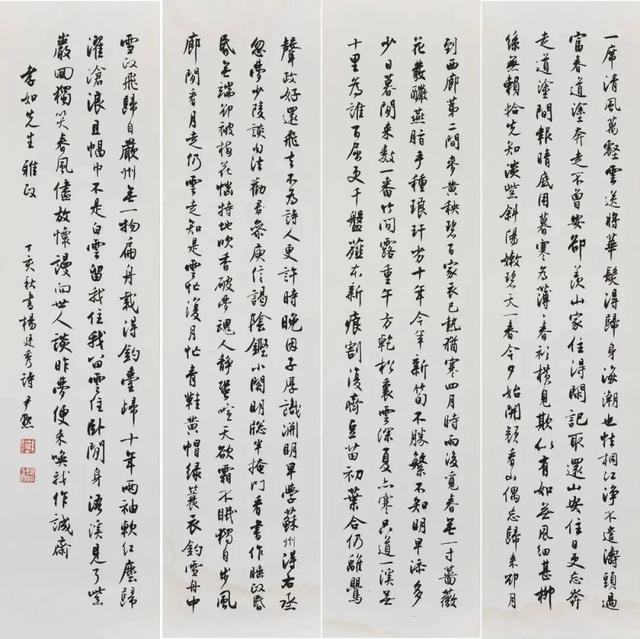 一席清風萬壑雲送將華髮得歸身海潮也怯桐江淨不遣濤頭過
富春道塗奔走不曾安卻羨山家住得閒記取還山安住日更忘奔
走道塗間報時底用暮寒為薄薄春衫橫見欺似有如無風細甚柳
絲無賴拾先知淡紫斜陽嫩碧天一春今夕始開顏看山偶忘歸來卻月
到西廊第二間麥黃秧碧百家衣已熱猶寒四月時雨後覓春無一寸薔薇
花發釀燕脂手種琅玕劣十年今年新筍不勝繁不知明早添多
少日暮閒來數一番竹間露重午方乾松裏雲深夏亦寒只道一溪無
十里為誰百屈更千盤薤本新痕割後齊豆苗初葉合仍離鸎
聲政好還飛去不為詩人更許時晚因子厚識淵明早學蘇州得右丞
忽夢少陵談句法勸君參庾信謁陰鏗小閣明窗半掩門看書作睡政昏
昏無端卻被梅花惱特地吹香破夢魂人靜蛩喧天欲霜不眠獨自步風
廊閒看月走仍雲走知是雲忙復月忙青鞋黃帽綠蓑衣釣雪舟中
雪政飛歸自嚴州無一物扁舟載得釣臺歸十年兩袖軟紅塵歸
濯滄浪且幅巾不是白雲留我住我留雲住臥閒身浯溪見了紫
巖回獨笑春風儘放懷謾向世人談昨夢便來喚我作誠齋
孝如先生 雅政
丁亥秋書楊廷秀詩 尹默